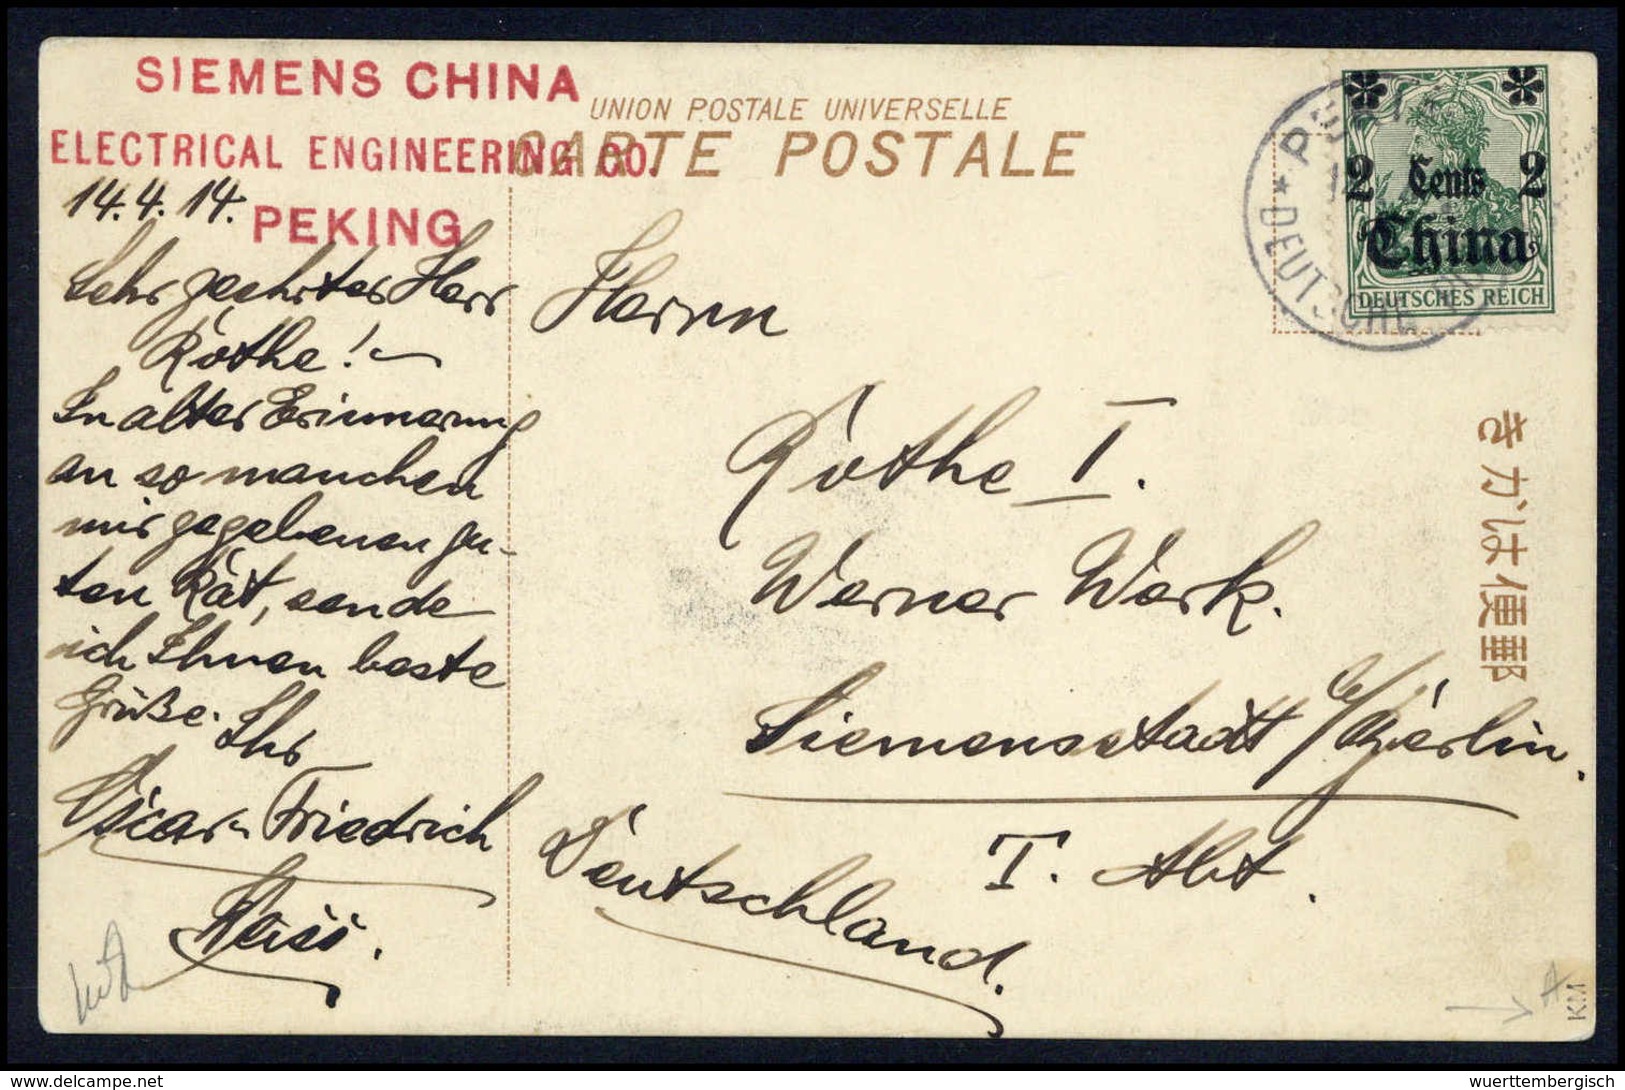 SIEMENS CHINA
ELECTRICAL ENGINEERING CO.
PEKING
UNION POSTALE UNIVERSELLE
CARTE POSTALE
14.4.14.
Sehr geehrter Herr
Rothe!
In alter Erinnerung
an so manchen
mir gegebenen gu-
ten Rat, sende
ich Ihnen beste
Grüße. Ihr
Oscar Friedrich
Herrn
Rothe I.
Werner Werk.
Siemensstadt b/Berlin.
I. Abt.
Deutschland.
2 Cents 2
China
DEUTSCHES REICH
DEUTSCHE
きかは便郵
KM
www.delcampe.net
wuerttembergisch